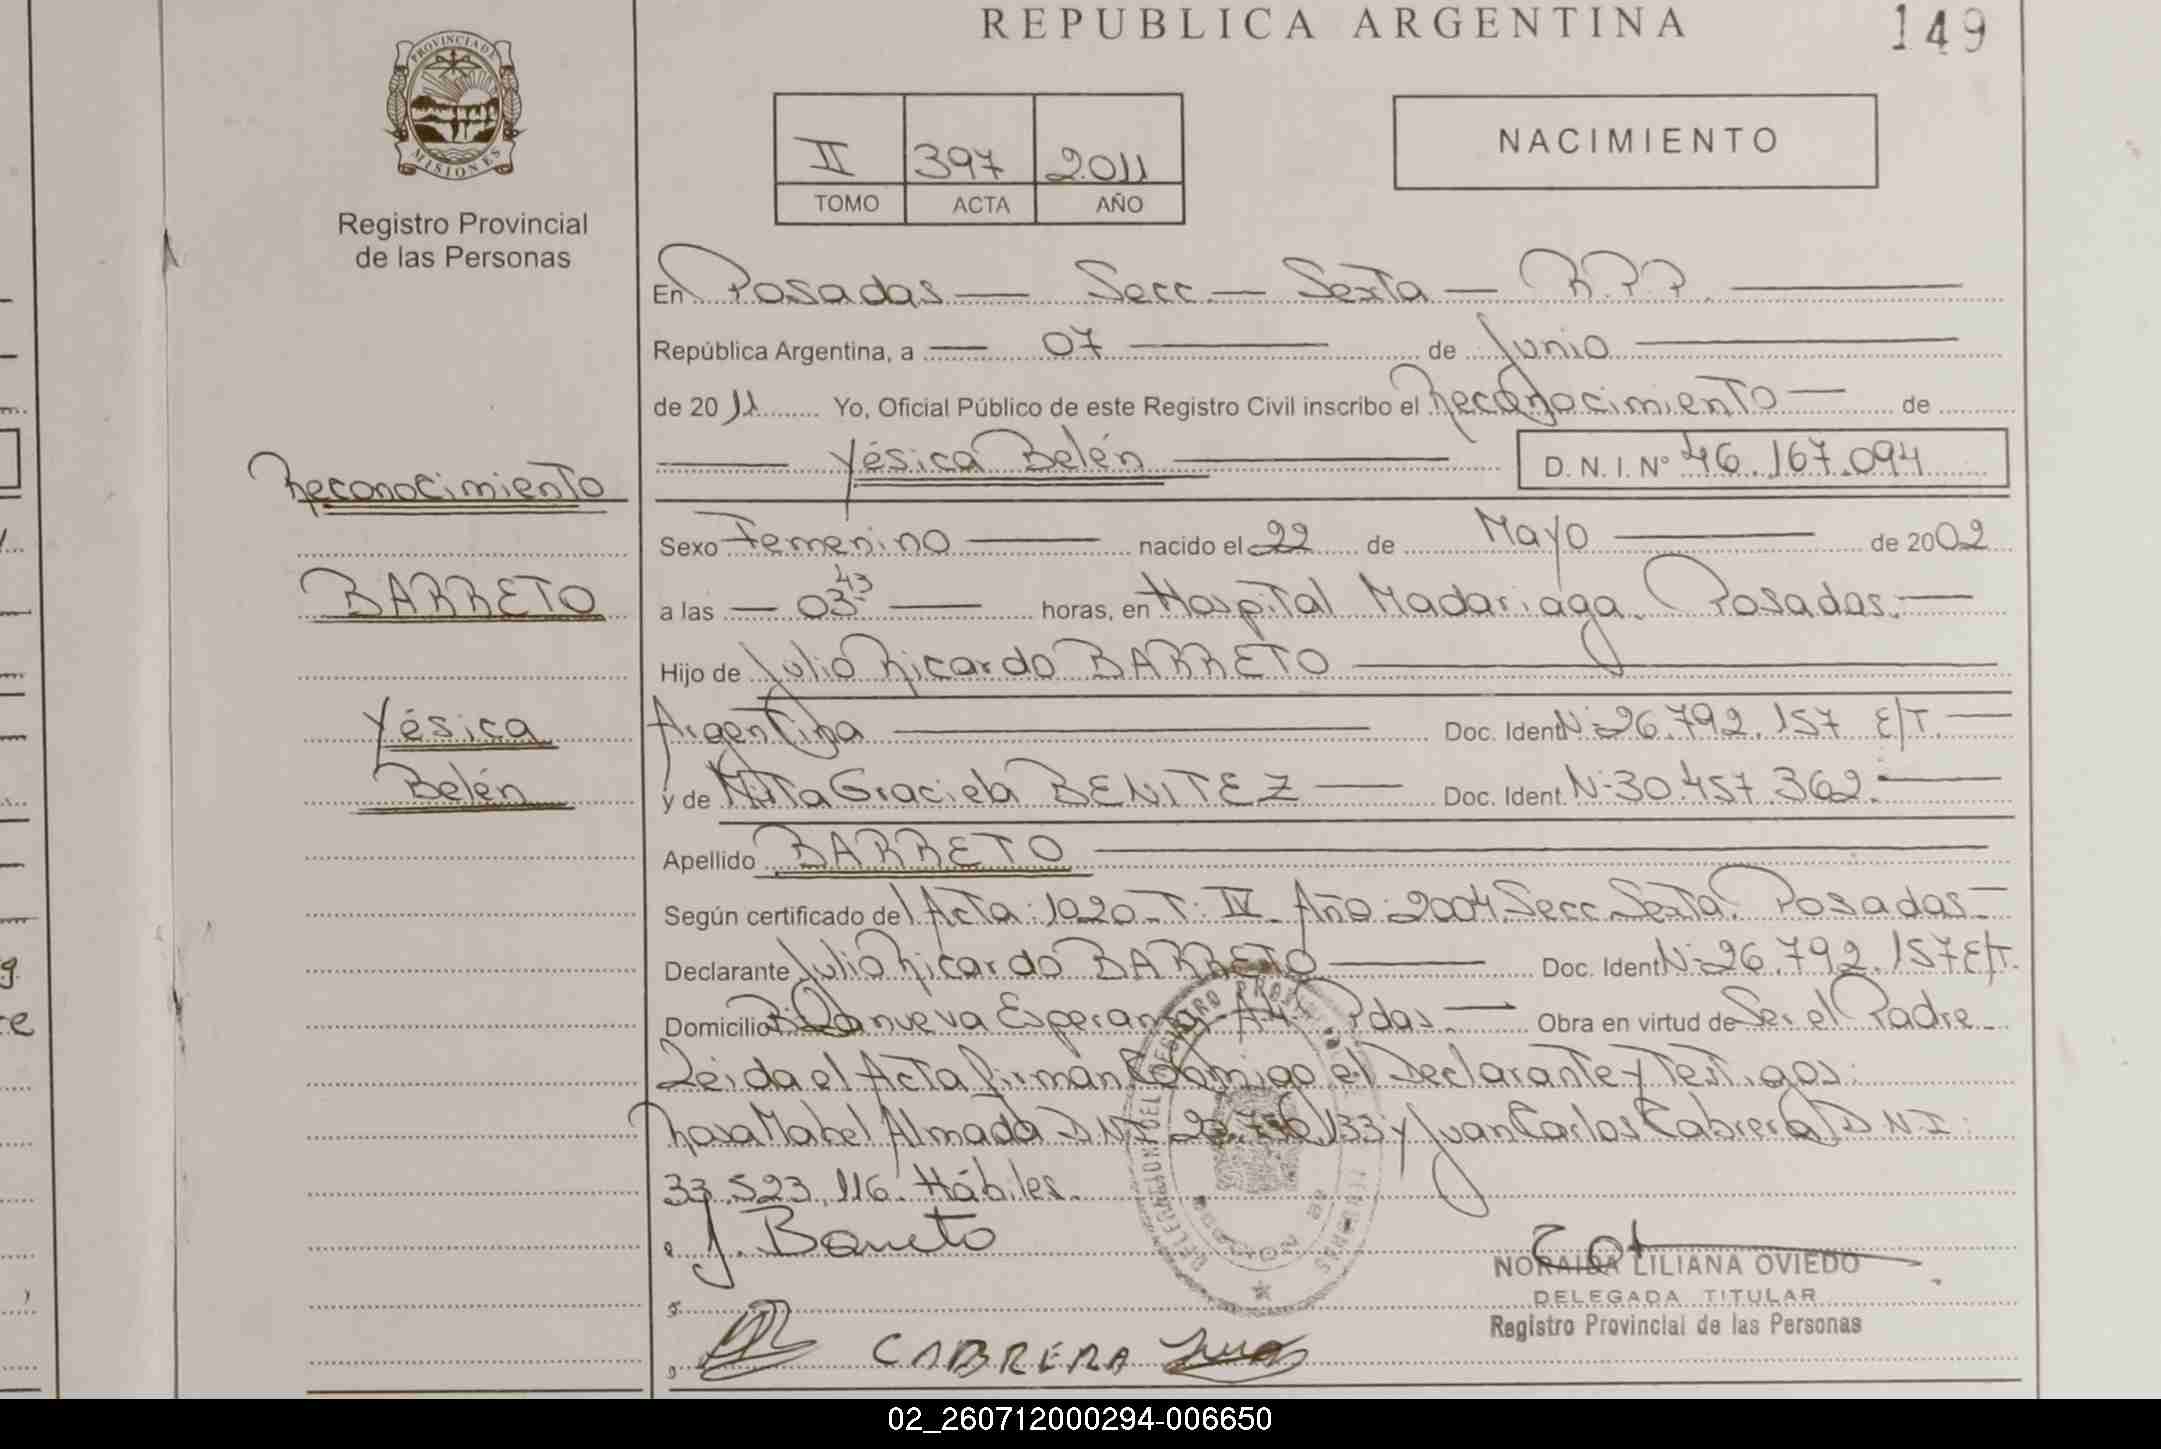 REPUBLICA ARGENTINA
149
PROVINCIA DE
MISIONES
Registro Provincial
de las Personas
II 397 2011
TOMO ACTA AÑO
NACIMIENTO
En Posadas — Secc. — Sexta — R.P.P.
República Argentina, a — 07 — de Junio
de 20 11 Yo, Oficial Público de este Registro Civil inscribo el Reconocimiento — de
Yésica Belén D. N. I. N° 46.167.094
Reconocimiento
Sexo Femenino — nacido el 22 de Mayo — de 2002
BARRETO
a las — 03.43 — horas, en Hospital Madariaga. Posadas. —
Hijo de Julio Ricardo BARRETO
Yésica
Argentina — Doc. Ident N: 26.792.157 E/T. —
Belén
y de Graciela BENITEZ — Doc. Ident. N: 30.457.362. —
Apellido BARRETO
Según certificado del Acta: 1020 - T: IV - Año: 2004 Secc. Sexta. Posadas —
Declarante Julio Ricardo BARRETO — Doc. Ident N: 26.792.157 E/T.
Domicilio nueva Esperanza - Pdas. — Obra en virtud de Ser el Padre —
Leida el Acta firman Conmigo el Declarante y Testigos:
Rosa Mabel Almada D.N.I. 133 y Juan Carlos Cabrera D.N.I:
33.523.116. Hábiles.
J. Barreto
NORAIDA LILIANA OVIEDO
DELEGADA TITULAR
Registro Provincial de las Personas
CABRERA Juan
02_260712000294-006650